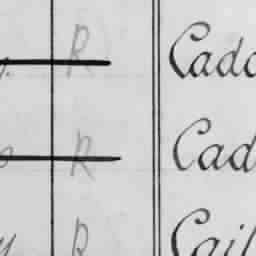 R Cadd
R Cad
R Cail